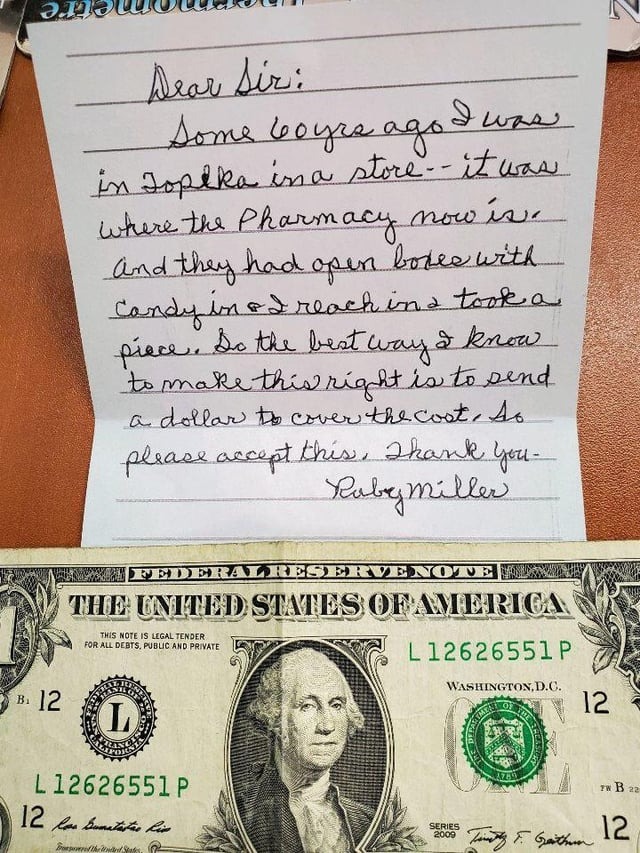 Thermometre
N
Dear Sir:
Some 60 yrs ago I was
in Topeka in a store-- it was
where the Pharmacy now is.
And they had open boxes with
Candy in & I reach in & took a
piece. So the best way I know
to make this right is to send
a dollar to cover the cost. So
please accept this. Thank You-
Ruby Miller
FEDERAL RESERVE NOTE
THE UNITED STATES OF AMERICA
THIS NOTE IS LEGAL TENDER
FOR ALL DEBTS, PUBLIC AND PRIVATE
L 12626551 P
WASHINGTON, D.C.
B1 12
12
L
L 12626551 P
12
SERIES
2009
FW B 22
12
1789